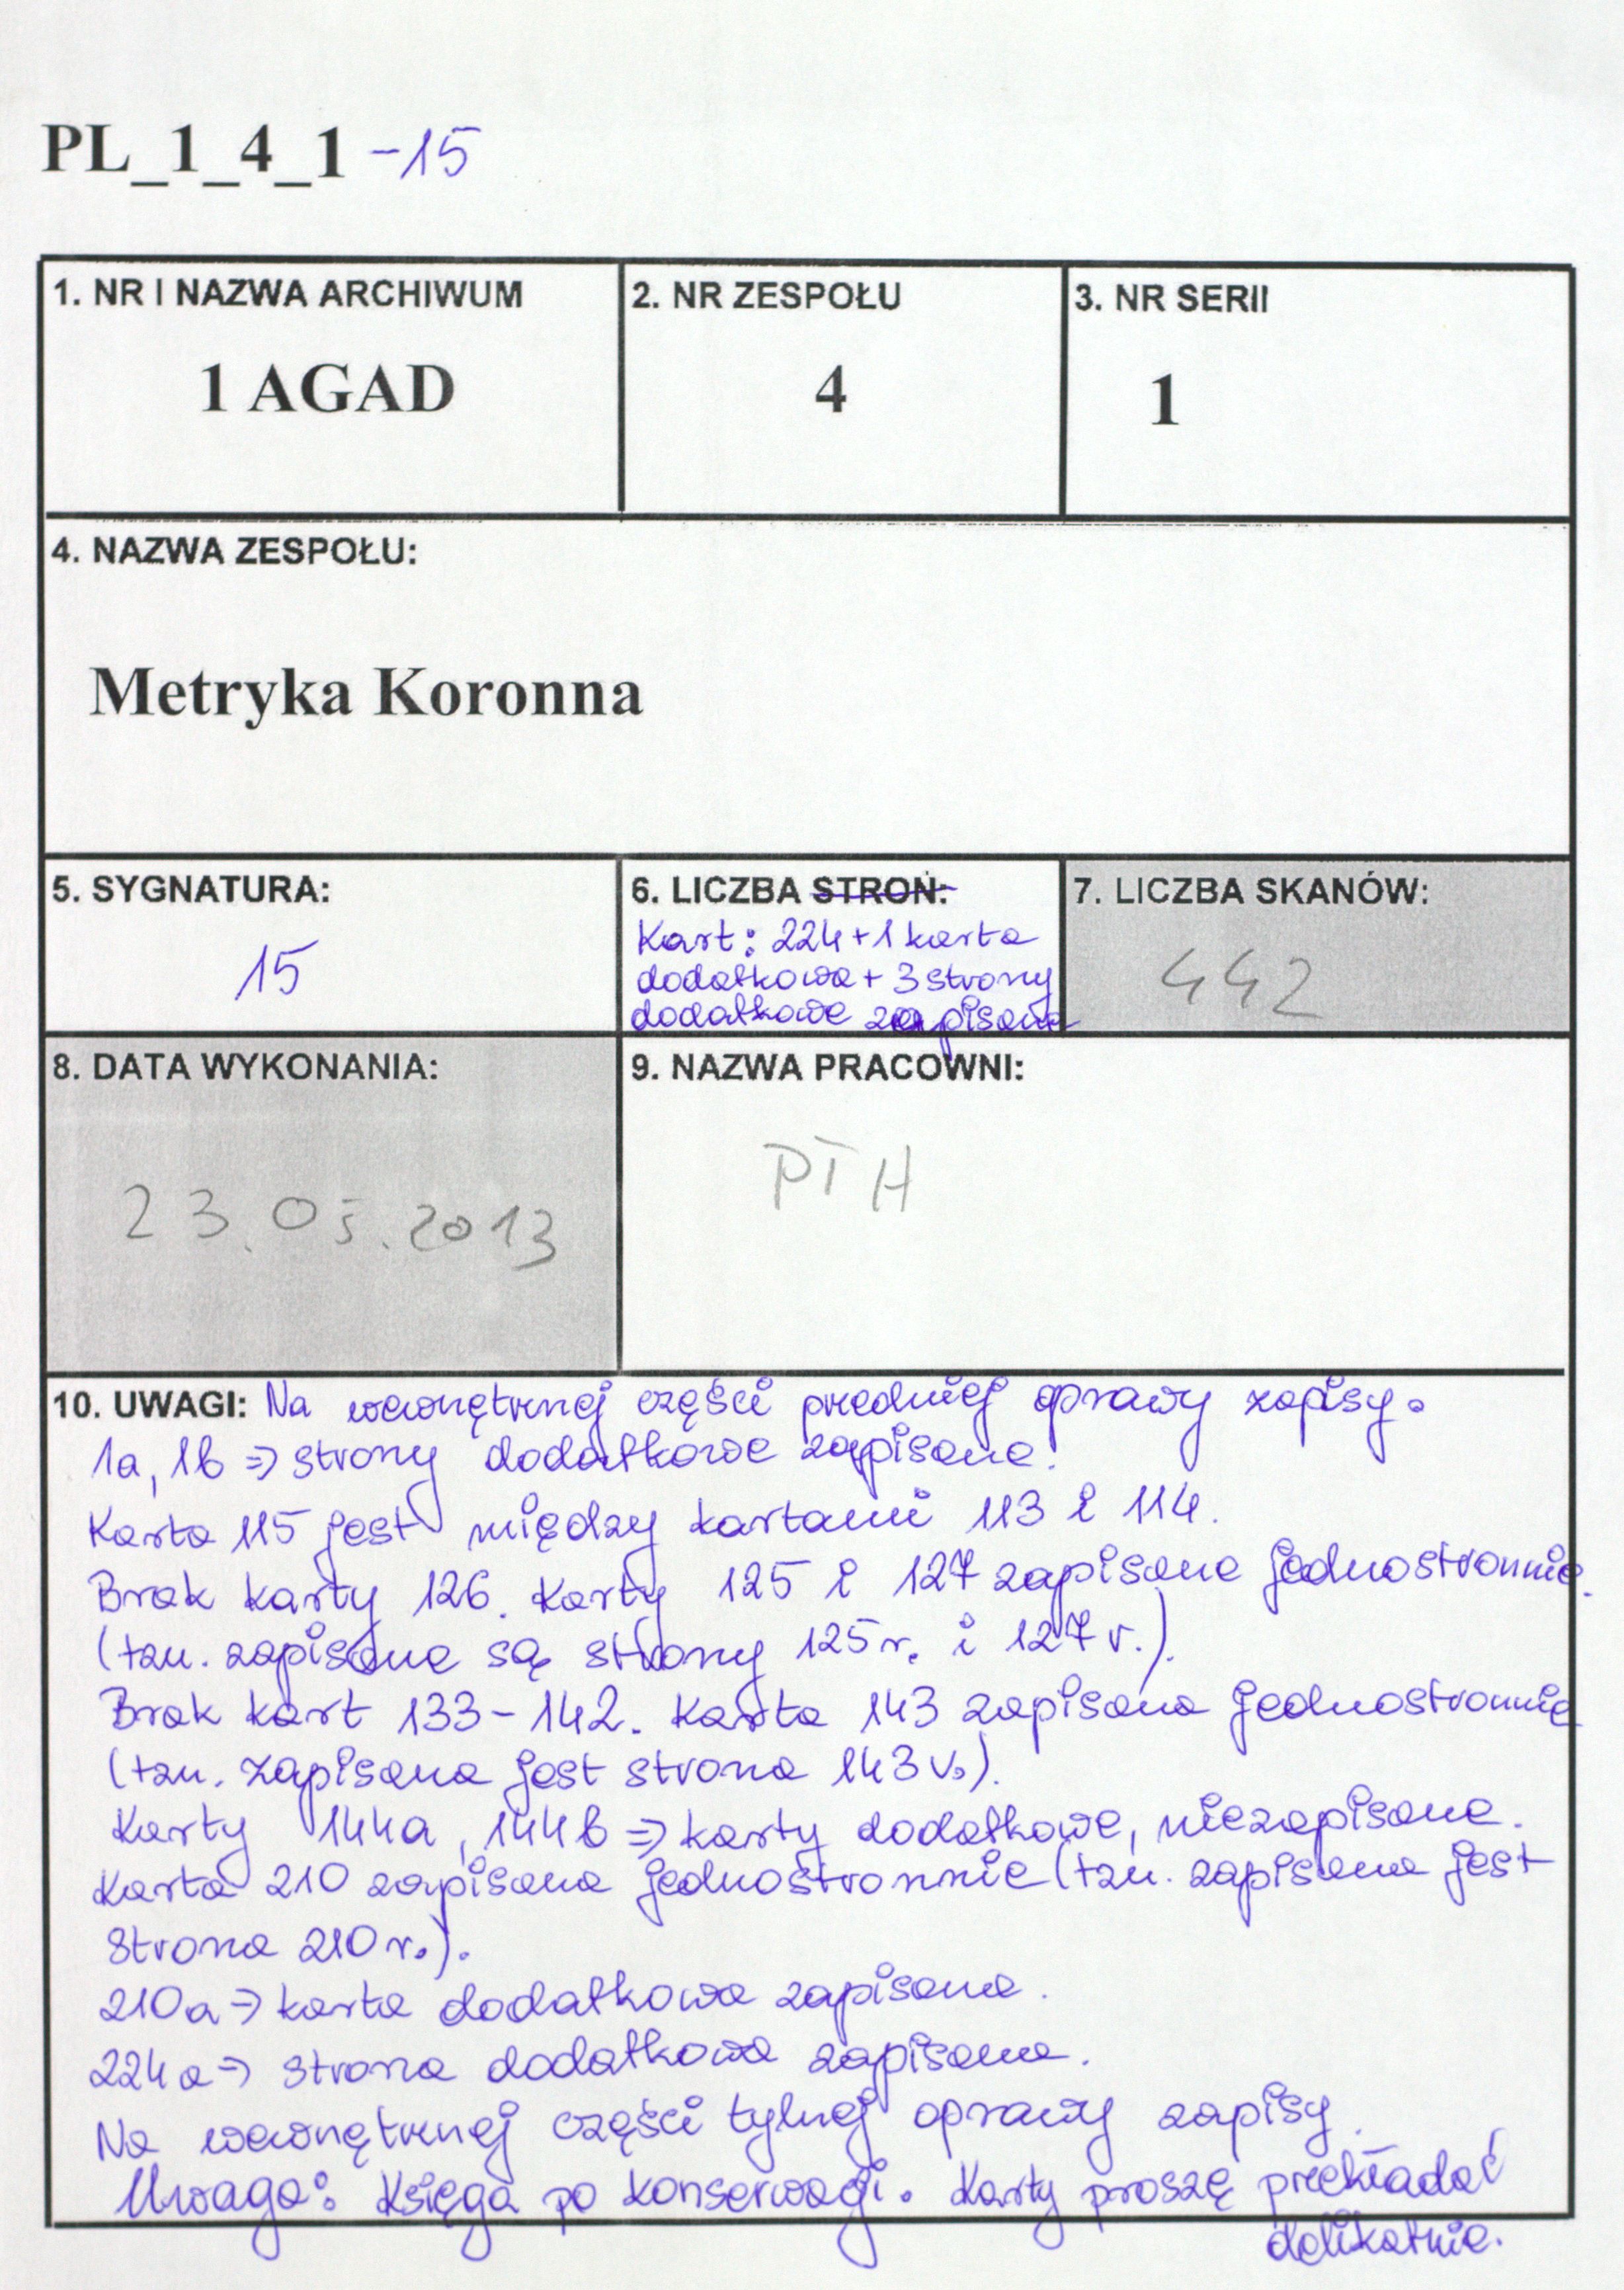 PL_1_4_1 -15
1. NR I NAZWA ARCHIWUM
1 AGAD
2. NR ZESPOŁU
4
3. NR SERII
1
4. NAZWA ZESPOŁU:
Metryka Koronna
5. SYGNATURA:
15
6. LICZBA STRON:
Kart: 224 + 1 karta
dodatkowa + 3 strony
dodatkowe zapisane
7. LICZBA SKANÓW:
442
8. DATA WYKONANIA:
23.05.2013
9. NAZWA PRACOWNI:
PTH
10. UWAGI: Na wewnętrznej części przedniej oprawy zapisy.
1a, 1b => strony dodatkowe zapisane.
Karta 115 jest między kartami 113 i 114.
Brak karty 126. Karty 125 i 127 zapisane jednostronnie.
(tzn. zapisane są strony 125 r. i 127 v.).
Brak kart 133-142. Karta 143 zapisana jednostronnie
(tzn. zapisana jest strona 143 v.).
Karty 144a, 144b => karty dodatkowe, niezapisane.
Karta 210 zapisana jednostronnie (tzn. zapisana jest
strona 210 r.).
210a => karta dodatkowa zapisana.
224a => strona dodatkowa zapisana.
Na wewnętrznej części tylnej oprawy zapisy.
Uwaga: Księga po konserwacji. Karty proszę przekładać
delikatnie.